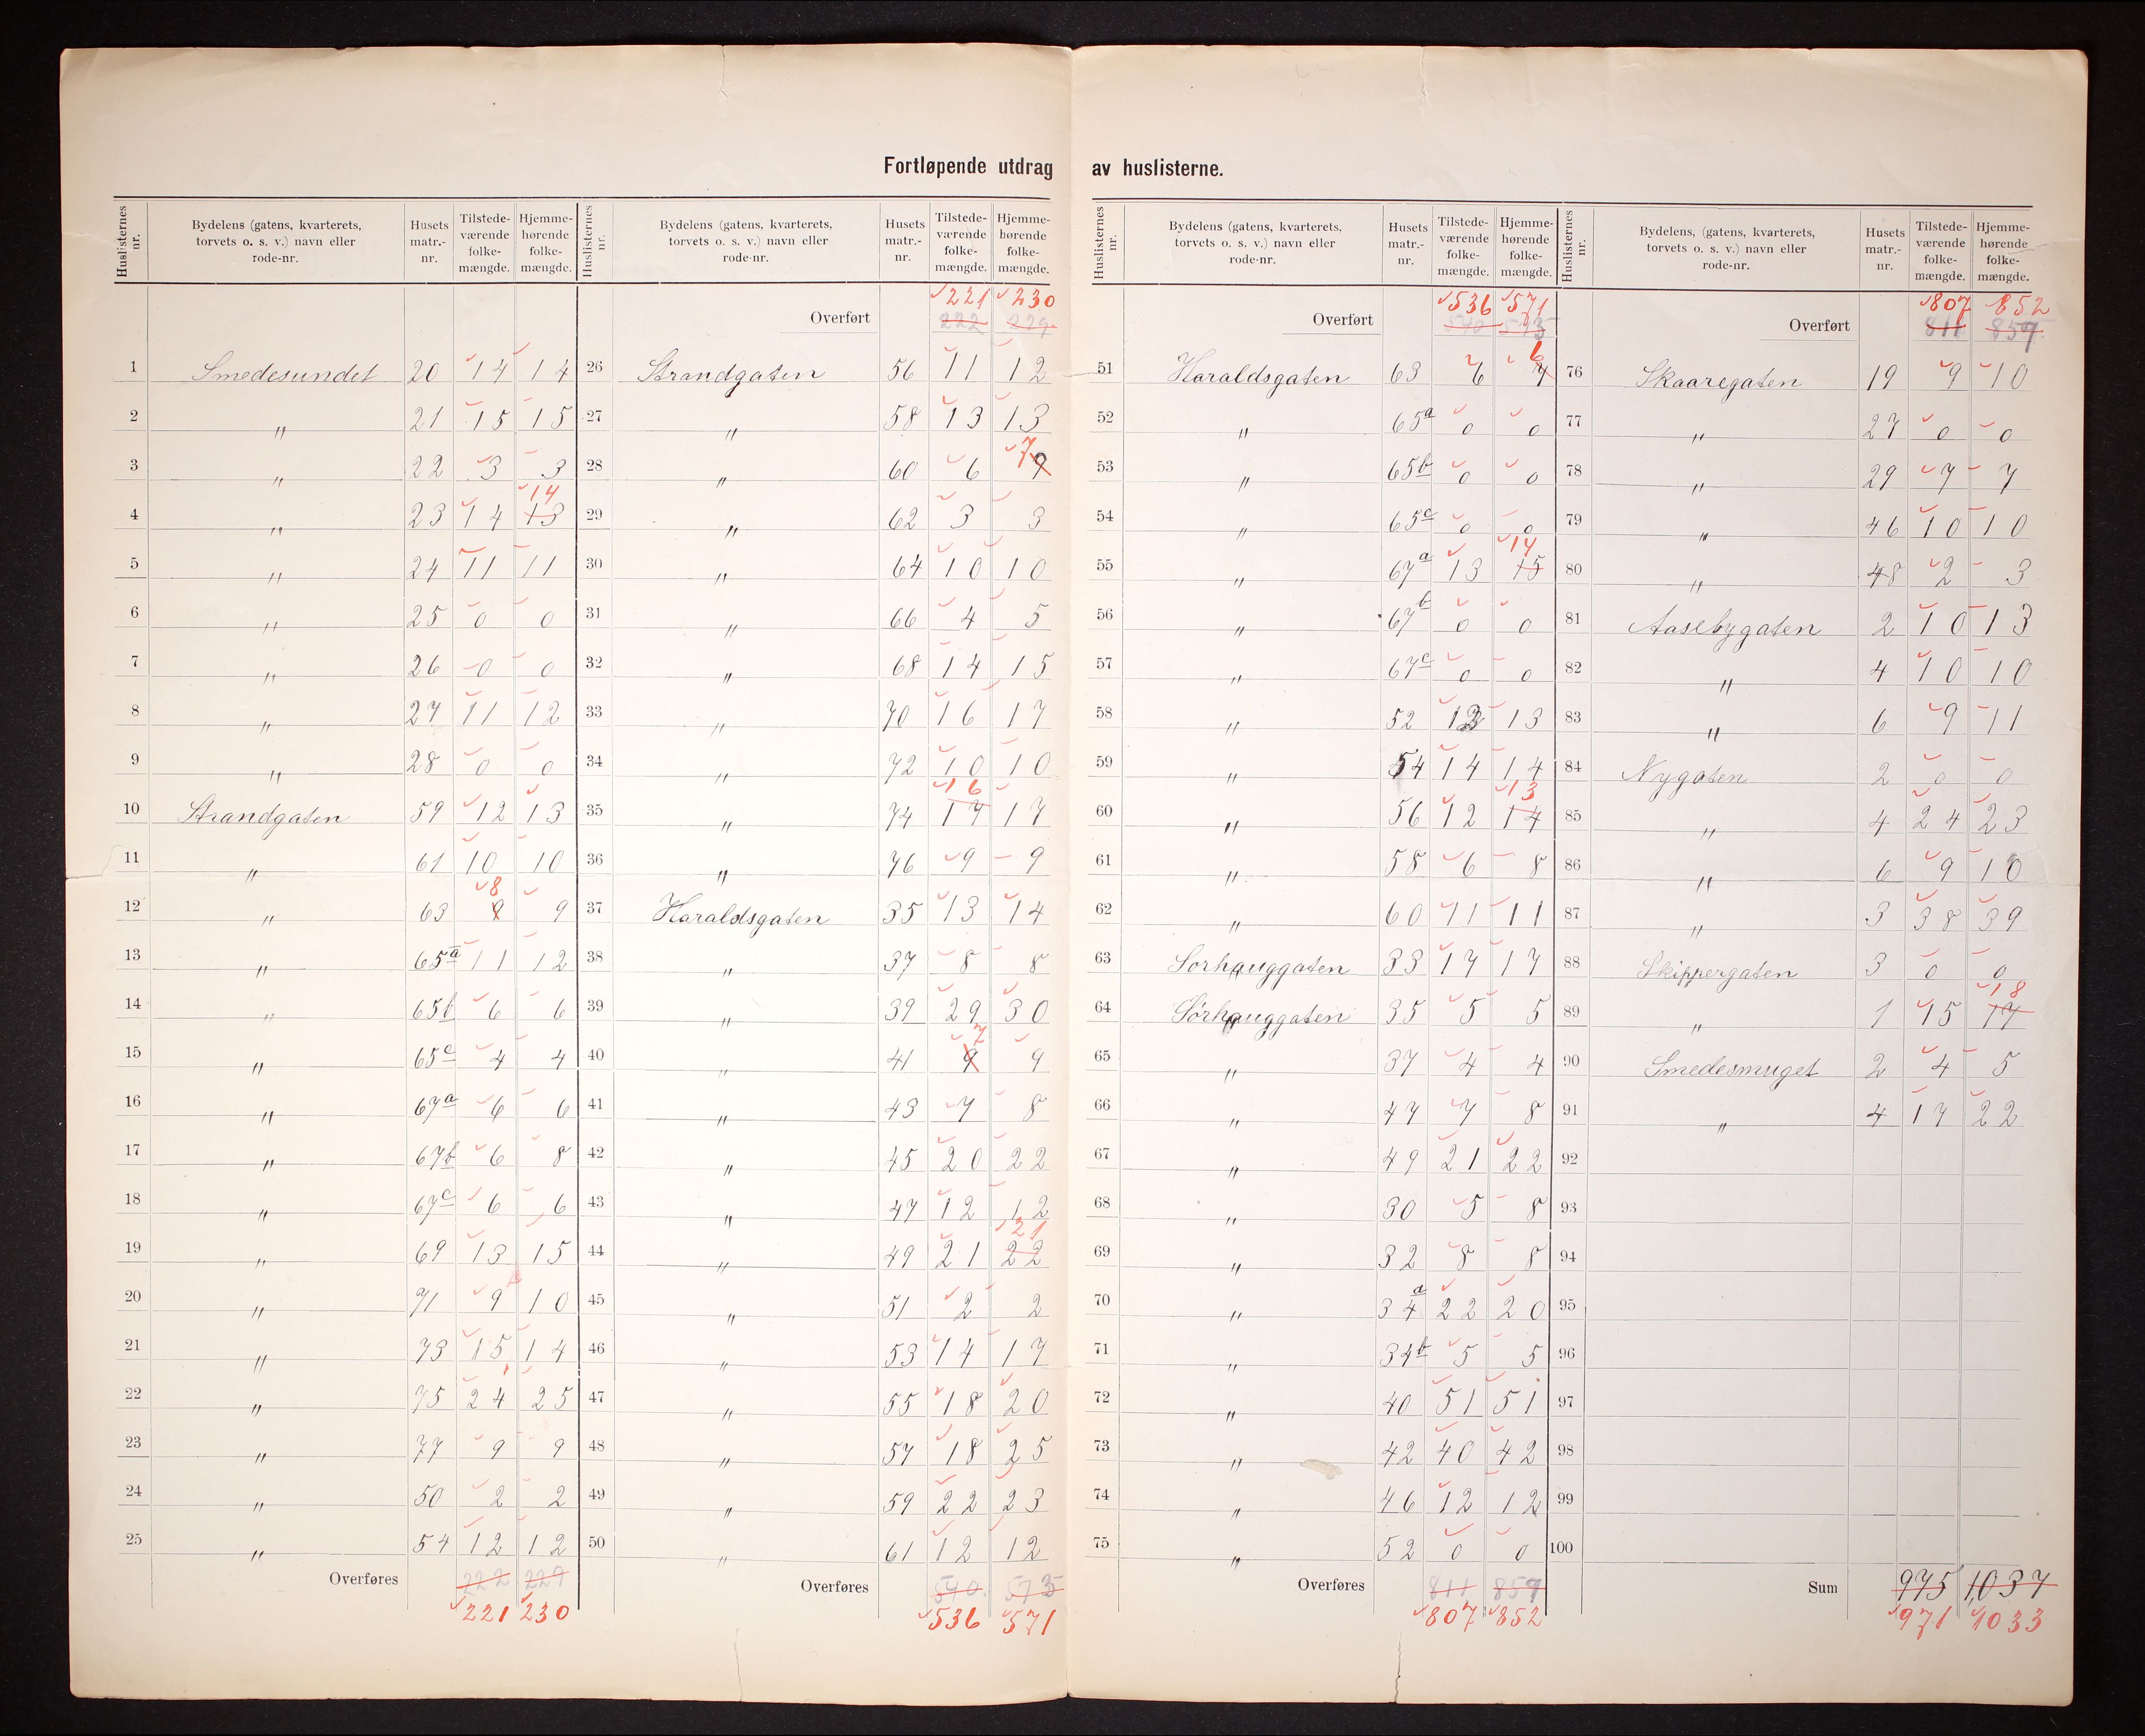 Fortløpende utdrag av huslisterne.
Huslisternes nr. | Bydelens (gatens, kvarterets, torvets o. s. v.) navn eller rode-nr. | Husets matr.-nr. | Tilstede-værende folke-mængde. | Hjemme-hørende folke-mængde.
1 Smedesundet 20 14 14
2 " 21 15 15
3 " 22 3 3
4 " 23 14 13 14
5 " 24 11 11
6 " 25 0 0
7 " 26 0 0
8 " 27 11 12
9 " 28 0 0
10 Strandgaten 59 12 13
11 " 61 10 10
12 " 63 9 8 9
13 " 65a 11 12
14 " 65b 6 6
15 " 65c 4 4
16 " 67a 6 6
17 " 67b 6 8
18 " 67c 6 6
19 " 69 13 15
20 " 71 9 10
21 " 73 15 14
22 " 75 24 25
23 " 77 9 9
24 " 50 2 2
25 " 54 12 12
Overføres 222 229
221 230
Huslisternes nr. | Bydelens (gatens, kvarterets, torvets o. s. v.) navn eller rode-nr. | Husets matr.-nr. | Tilstede-værende folke-mængde. | Hjemme-hørende folke-mængde.
221 230
Overført 222 229
26 Strandgaten 56 11 12
27 " 58 13 13
28 " 60 6 9 7
29 " 62 3 3
30 " 64 10 10
31 " 66 4 5
32 " 68 14 15
33 " 70 16 17
34 " 72 10 10
35 " 74 17 16 17
36 " 76 9 9
37 Haraldsgaten 35 13 14
38 " 37 8 8
39 " 39 29 30
40 " 41 9 7 9
41 " 43 7 8
42 " 45 20 22
43 " 47 12 12
44 " 49 21 22 21
45 " 51 2 2
46 " 53 14 17
47 " 55 18 20
48 " 57 18 25
49 " 59 22 23
50 " 61 12 12
Overføres 540 573
536 571
Huslisternes nr. | Bydelens (gatens, kvarterets, torvets o. s. v.) navn eller rode-nr. | Husets matr.-nr. | Tilstede-værende folke-mængde. | Hjemme-hørende folke-mængde.
536 571
Overført 540 573
51 Haraldsgaten 63 6 7 6
52 " 65a 0 0
53 " 65b 0 0
54 " 65c 0 0
55 " 67a 13 15 14
56 " 67b 0 0
57 " 67c 0 0
58 " 52 12 13
59 " 54 14 14
60 " 56 12 14 13
61 " 58 6 8
62 " 60 11 11
63 Sorhauggaten 33 17 17
64 Sørhauggaten 35 5 5
65 " 37 4 4
66 " 47 7 8
67 " 49 21 22
68 " 30 5 8
69 " 32 8 8
70 " 34a 22 20
71 " 34b 5 5
72 " 40 51 51
73 " 42 40 42
74 " 46 12 12
75 " 52 0 0
Overføres 811 857
807 852
Huslisternes nr. | Bydelens, (gatens, kvarterets, torvets o. s. v.) navn eller rode-nr. | Husets matr.-nr. | Tilstede-værende folke-mængde. | Hjemme-hørende folke-mængde.
807 852
Overført 811 857
76 Skaaregaten 19 9 10
77 " 27 0 0
78 " 29 7 7
79 " 46 10 10
80 " 48 2 3
81 Aasebygaten 2 10 13
82 " 4 10 10
83 " 6 9 11
84 Nygaten 2 0 0
85 " 4 24 23
86 " 6 9 10
87 " 3 38 39
88 Skippergaten 3 0 0
89 " 1 15 17 18
90 Smedesmuget 2 4 5
91 " 4 17 22
92
93
94
95
96
97
98
99
100
Sum 975 1,037
971 1033